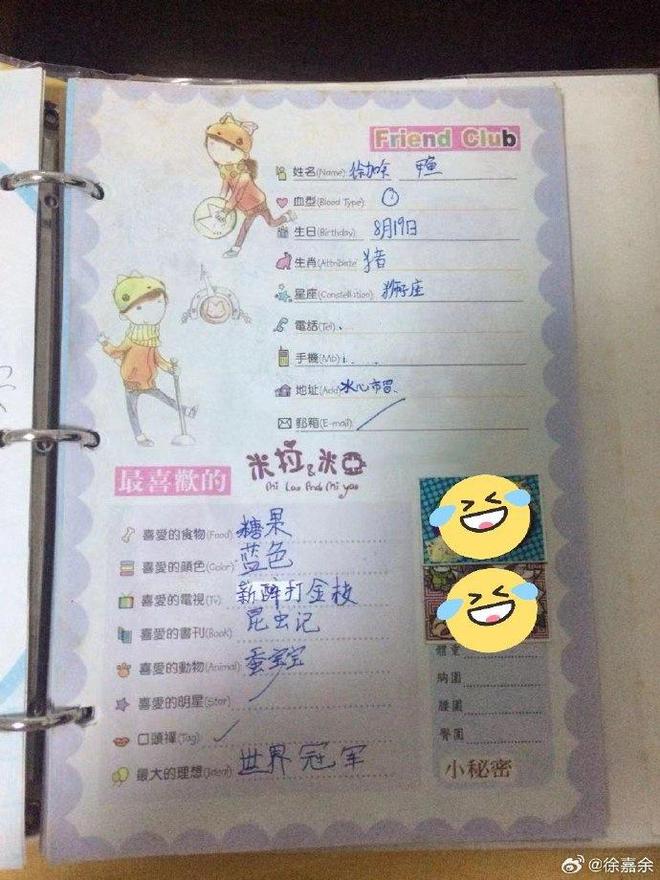 Friend Club
姓名(Name) 徐加余 甲鱼
血型(Blood Type) O
生日(Birthday) 8月19日
生肖(Attribute) 猪
星座(Constellation) 狮子座
電話(Tel)
手機(Mb)
地址(Add) 水心市图
郵箱(E-mail)
米拉&米亞
Mi Laa And Mi yaa
最喜歡的
喜愛的食物(Food) 糖果
喜愛的顔色(Color) 蓝色
喜愛的電視(Tv) 新醉打金枝
喜愛的書刊(Book) 昆虫记
喜愛的動物(Animal) 蚕宝宝
喜愛的明星(Star)
口頭禪(Tag)
最大的理想(Ideal) 世界冠军
體重
胸圍
腰圍
臀圍
小秘密
@徐嘉余